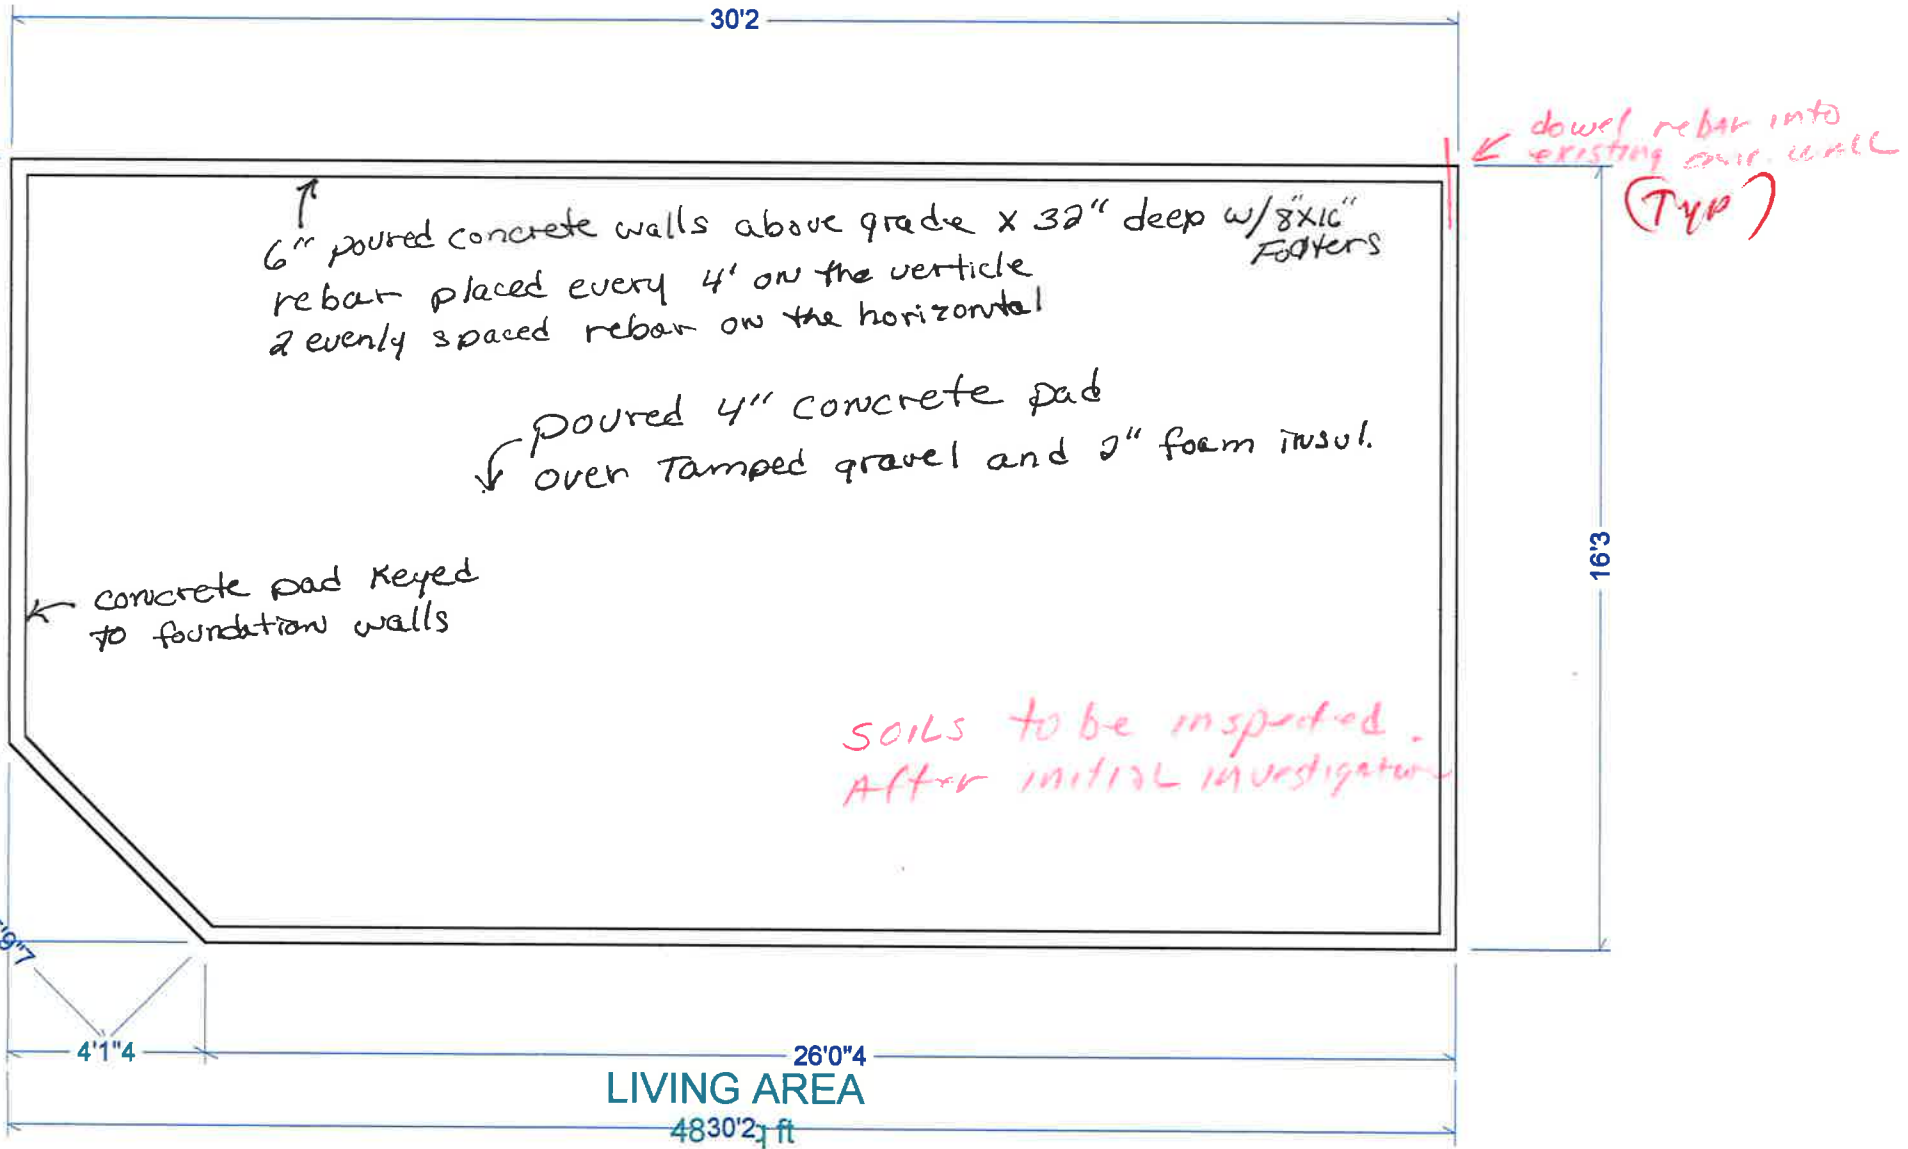 30'2
dowel rebar into
existing wall
(Typ)
6" poured concrete walls above grade x 32" deep w/8"x16"
Footers
rebar placed every 4' on the verticle
2 evenly spaced rebar on the horizontal
poured 4" concrete pad
over Tamped gravel and 2" foam insul.
16'3
concrete pad Keyed
to foundation walls
SOILS to be inspected.
After initial investigation
9"7
4'1"4
26'0"4
LIVING AREA
30'2
ft